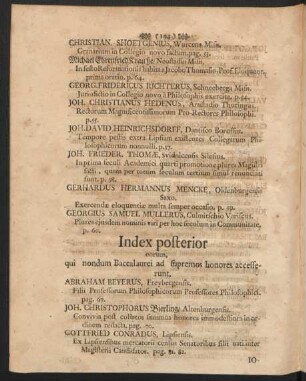 CHRISTIAN. SHOETGENIUS, Wurcena Misn.
Gregarium in Collegio novo factum. pag. 51.
Michael Ehrenfried Krause, Neostadio Misn.
In festo Reformationis habita a Jacobo Thomasio Prof. Eloquent.
prima oratio. p. 64.
GEORG. FRIDERICUS RICHTERUS, Schneeberga Misn.
Jurisdictio in Collegio novo à Philosophis exercita. p. 54.
JOH. CHRISTIANUS HEDENUS, Arnstadio Thuringus.
Rectorum Magnificentissimorum Pro-Rectores Philosophi.
p. 55.
JOH. DAVID HEINRICHSDORFF, Dantisco Borussus.
Tempore pestis extra Lipsiam exulantes Collegarum Phi-
losophicorum nonnulli. p. 57.
JOH. FRIEDER. THOMÆ, Svidnicensis Silesius.
In prima seculi Academici quarti promotione plures Magistri
facti, quam per totum seculum tertium simul renunciati
sunt. p. 58.
GERHARDUS HERMANNUS MENCKE, Oldenburgensis
Saxo.
Exercendæ eloquentiæ multa semper occasio. p. 59.
GEORGIUS SAMUEL MULLERUS, Culmitschio Variscus.
Plures ejusdem nominis viri per hoc seculum in Communitate.
p. 60.
Index posterior
eorum,
qui nondum Baccalaurei ad supremos honores accesse-
runt.
ABRAHAM BEYERUS, Freybergensis.
Filii Professorum Philosophicorum Professores Philosophici.
pag. 67.
JOH. CHRISTOPHORUS Bierling Altenburgensis.
Convivia post collatos summos honores immodestiora in or-
dinem redacta. pag. 70.
GOTTFRIED CONRADUS, Lipsiensis.
Ex Lipsiensibus mercatorii census Senatoribus filii uni inter
Magisterii Candidatos. pag. 81. 82.
JO-